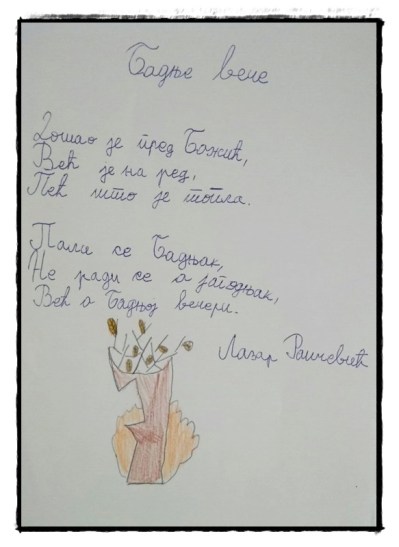 Бадње вече
Дошао је пред Божић,
Већ је на ред,
Пећ што је топла.
Пали се Бадњак,
Не ради се о јагодњак,
Већ о Бадњој вечери.
Лазар